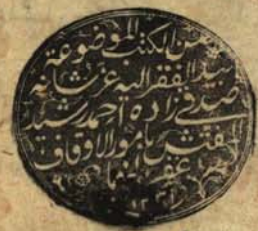 من الكتب الموضوعة
بيد الفقير اليه عز شانه
صدقي زاده احمد رشيد
المفتش بامور الاوقاف
عفى عنهما